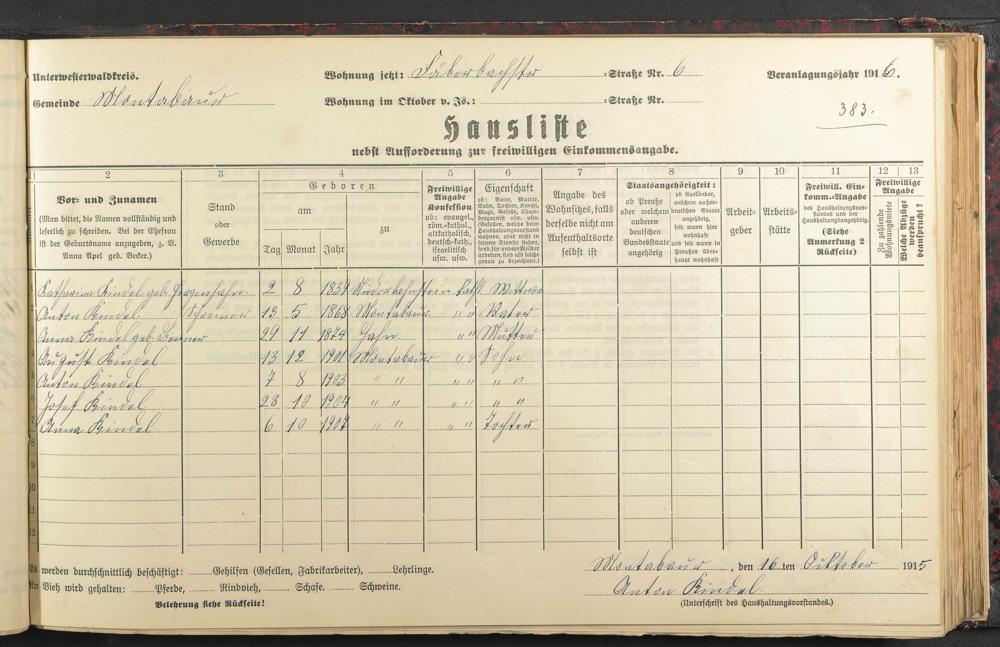 Unterwesterwaldkreis. Wohnung jetzt: Färberbachstr =Straße Nr. 6 Veranlagungsjahr 1916.
Gemeinde Montabaur Wohnung im Oktober v. Js.: =Straße Nr. 383.
Hausliste
nebst Aufforderung zur freiwilligen Einkommensangabe.
1 2 3 4 5 6 7 8 9 10 11 12 13
Vor- und Zunamen
(Man bittet, die Namen vollständig und
leserlich zu schreiben. Bei der Ehefrau
ist der Geburtsname anzugeben, z. B.
Anna Apel geb. Becker.)
Stand
oder
Gewerbe
Geboren
am
zu
Tag Monat Jahr
Freiwillige
Angabe
Konfession
ob: evangel.,
röm.-kathol.,
altkatholisch,
deutsch-kath.,
israelitisch
usw. usw.
Eigenschaft
ob: Vater, Mutter,
Sohn, Tochter, Knecht,
Magd, Geselle, Cham-
bregarnist usw. usw.
(Gesellen, welche beim
Haushaltungsvorstand
wohnen, aber nicht in
seinem Dienste stehen,
sond. für andere Meister
arbeiten, sind als solche
genau zu bezeichnen.)
Angabe des
Wohnsitzes, falls
derselbe nicht am
Aufenthaltsorte
selbst ist
Staatsangehörigkeit:
ob Preuße
oder welchem
anderen
deutschen
Bundesstaate
angehörig
ob Ausländer,
welchem außer-
deutschen Staate
angehörig,
seit wann hier
wohnhaft
und seit wann in
Preußen über-
haupt wohnhaft
Arbeit-
geber
Arbeits-
stätte
Freiwill. Ein-
komm.-Angabe
des Haushaltungsvor-
standes und der
Haushaltungsangehörig.
(Siehe
Anmerkung 2
Rückseite)
Freiwillige
Angabe
Zu zahlende
Wohnungsmiete
Welche Abzüge
werden
beansprucht?
1 Katharina Kindel geb. 2 8 1834 kath Wittwe
2 Anton Kindel. Schreiner 13 5 1868 Montabaur " " Vater
3 Anna Kindel geb. 29 11 1874 Hahn " " Mutter
4 August Kindel 13 12 1901 Montabaur " " Sohn
5 Anton Kindel 7 8 1903 " " " " " "
6 Josef Kindel 28 10 1904 " " " " " "
7 Anna Kindel 6 10 1907 " " " " Tochter
8
9
10
11
12
Es werden durchschnittlich beschäftigt: Gehilfen (Gesellen, Fabrikarbeiter), Lehrlinge.
An Vieh wird gehalten: Pferde, Rindvieh, Schafe. Schweine.
Belehrung siehe Rückseite!
Montabaur, den 16ten Oktober 1915
Anton Kindel
(Unterschrift des Haushaltungsvorstandes.)